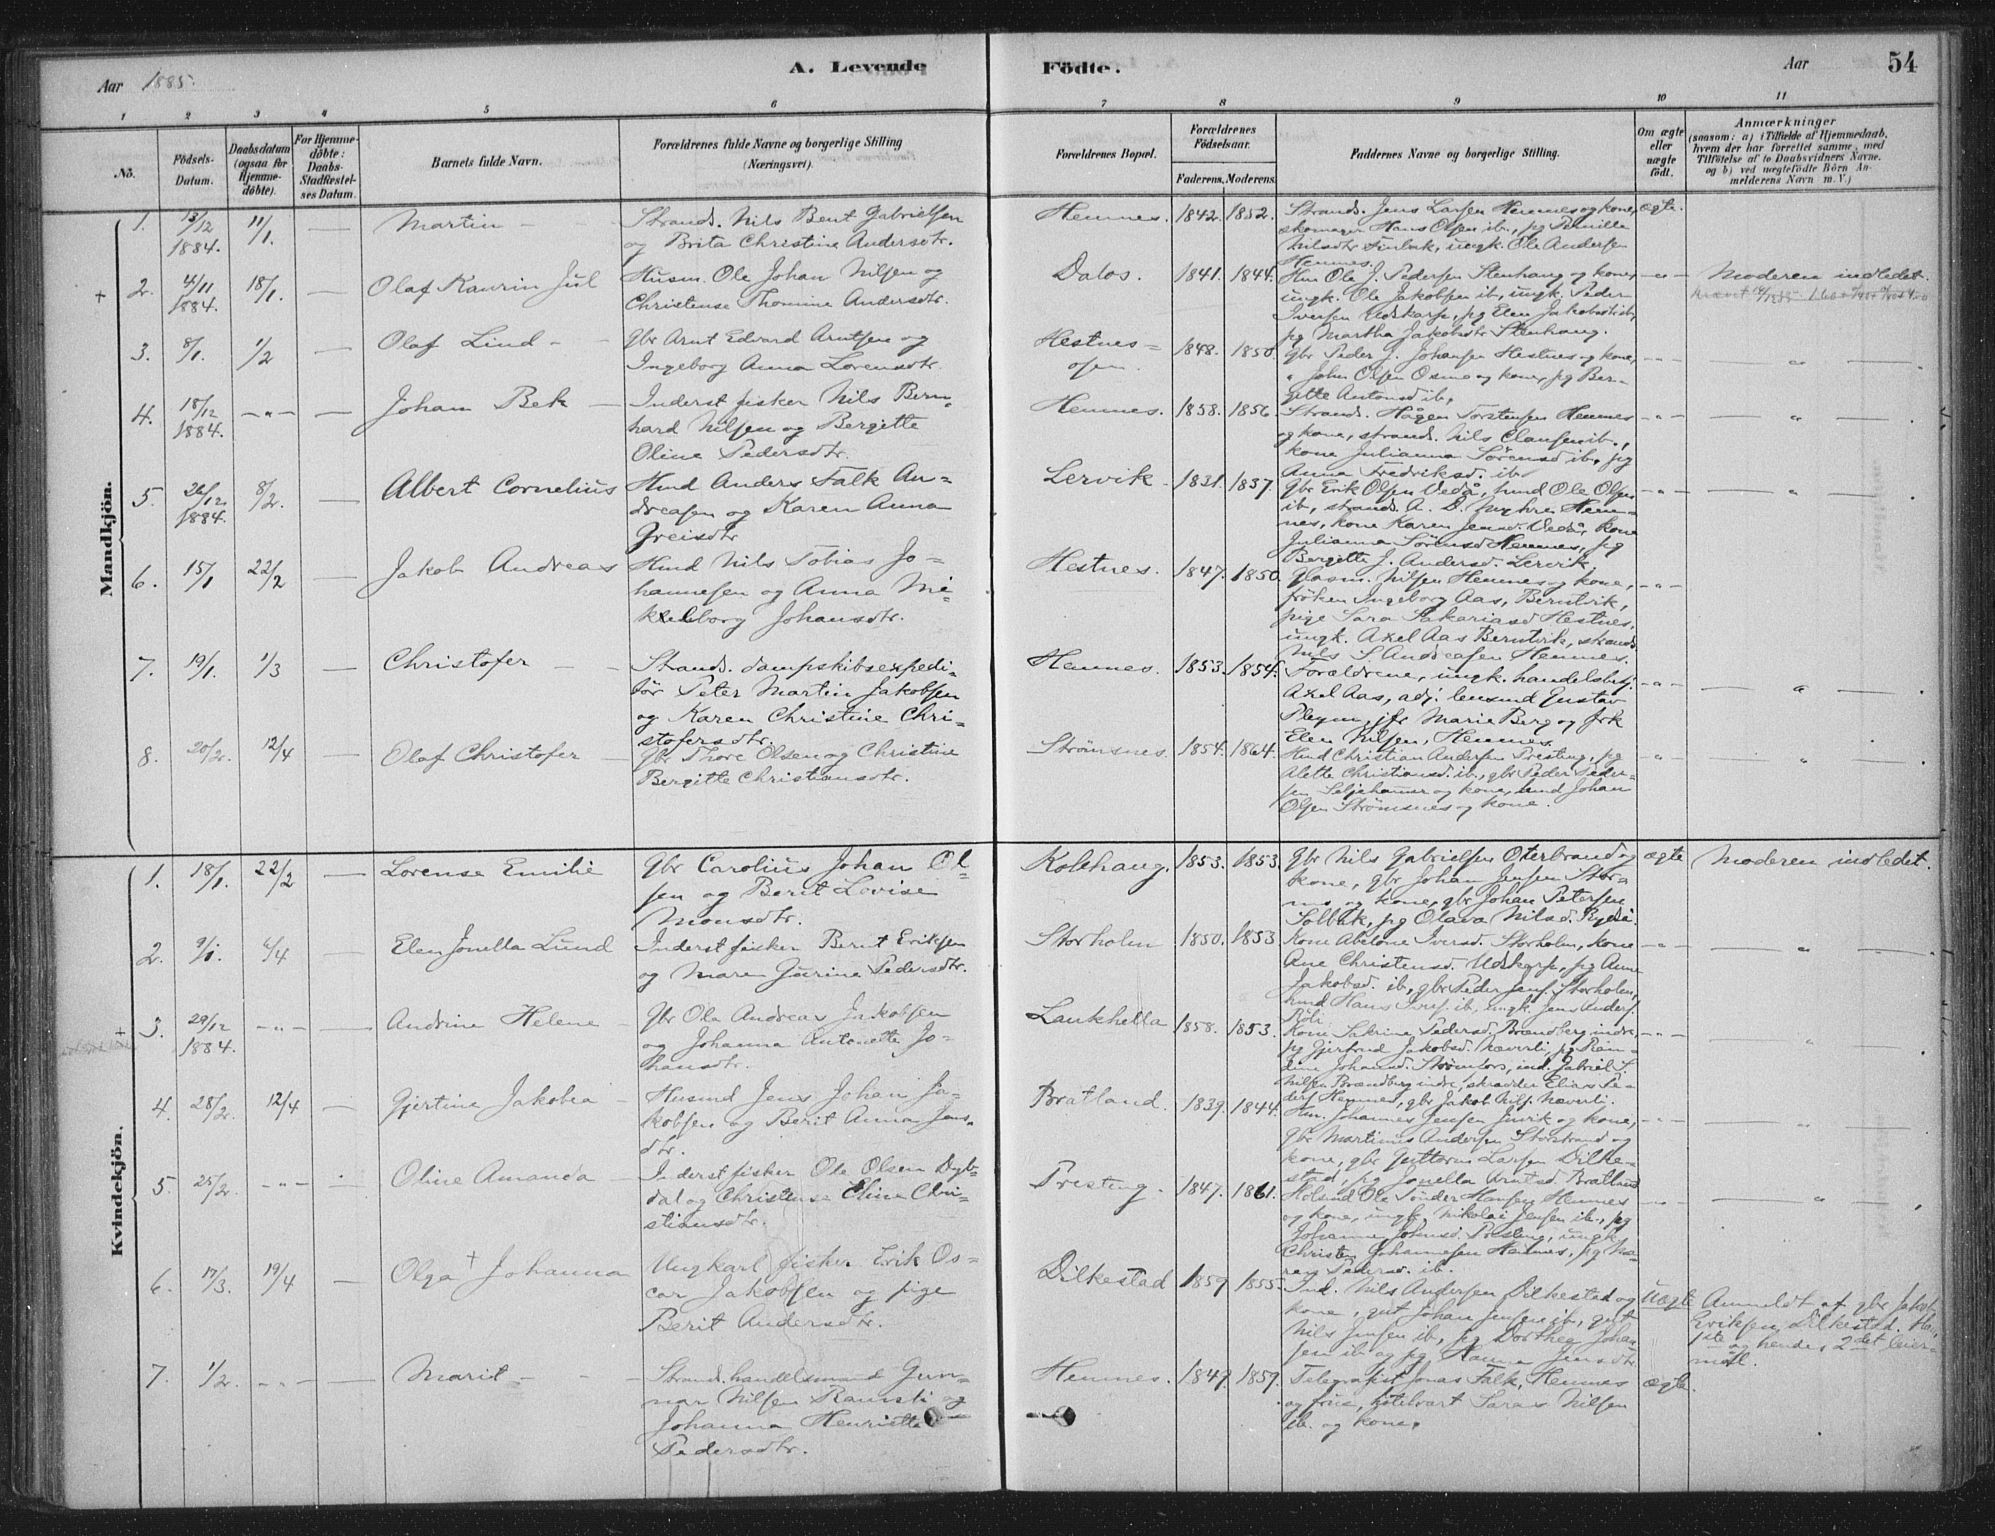 Aar 1885.
A. Levende
Födte.
Aar
54
1 2 3 4 5 6 7 8 9 10 11
No.
Födsels-Datum.
Daabsdatum (ogsaa for Hjemmedöbte).
For Hjemmedöbte: Daabs-Stadfestelses Datum.
Barnets fulde Navn.
Forældrenes fulde Navne og borgerlige Stilling
(Næringsvei)
Forældrenes Bopæl.
Forældrenes Födselsaar.
Faderens. Moderens.
Faddernes Navne og borgerlige Stilling.
Om ægte eller uægte födt.
Anmærkninger
(saasom: a) i Tilfælde af Hjemmedaab, hvem der har forrettet samme, med Tilföielse af to Daabsvidners Navne. og b) ved uægtefödte Börn Anmelderens Navn m. V.)
Mandkjön.
1. 13/12 1884. 11/1. — Martin — —
Strands. Nils Bent Gabrielsen
og Brita Christine Andersdtr.
Hemnes. 1842. 1852.
Strands. Jens Larsen Hemnes og kone,
skomager Hans Olsen ib., pg Pernille
Nilsdtr Finbak, ungk. Ole Andersen
Hemnes.
ægte.
+ 2. 4/11 1884. 18/1. — Olaf Kaurin Jul
Husm. Ole Johan Nilsen og
Christense Thomine Andersdtr.
Dalos. 1841. 1844.
Hm Ole J. Pedersen Stenhaug og kone,
ungk. Ole Jakobsen ib, ungk. Peder
Iversen Udskarp, pg Elen Jakobsdtr ib,
pg Martha Jakobsdtr Stenhaug.
-"- Moderen indledet.
3. 8/1. 1/2 — Olaf Lind - -
Gbr Arnt Edvard Arntsen og
Ingeborg Anna Lorensdtr.
Hestnes=
osen. 1848. 1850.
Gbr Peder J. Johansen Hestnes og kone,
" John Olsen Osmo og kone, pg Ber-
gitte Antonsd ib.
-"- — " —
4. 18/12 1884. -"- — Johan Bek —
Inderst fisker Nils Bern-
hard Nilsen og Bergitte
Oline Pedersdtr.
Hemnes. 1858. 1856.
Strands. Hågen Torstensen Hemnes
og kone, strands. Nils Clausen ib.,
kone Julianna Sörensd ib, pg
Anna Fredriksd. ib
-"- — " —
5. 26/12 1884. 8/2. — Albert Cornelius
Hmd Anders Falk An-
dreasen og Karen Anna
Greisdtr
Lervik. 1831. 1837.
gbr Erik Olsen Vedå, hmd Ole Olsen
ib, strands. A. D. Myhre Hem-
nes, kone Karen Jensd. Vedå, kone
Julianna Sörensd Hemnes, pg
Bergitte J. Andersd. Lervik.
-"- — " —
6. 15/1 22/2 — Jakob Andreas
Hmd Nils Tobias Jo-
hannesen og Anna Mi-
kkelborg Johansdtr.
Hestnes. 1847. 1850.
Nilsen Hemnes og kone,
fröken Ingeborg Aas, Berntvik,
pige Sara Sakariasd Hestnes,
ungk. Axel Aas Berntvik, strands
Nils S Andreasen Hemnes.
-"-
7. 19/1. 1/3 — Christofer — —
Strands. dampskibsexpedi-
tör Peter Martin Jakobsen
og Karen Christine Chri-
stofersdtr.
Hemnes. 1853. 1854.
Forældrene, ungk. handelsbetj.
Axel Aas, adj. lensmd Gustav
Pleym, jfr Marie Berg og frk
Elen Nilsen, Hemnes.
-"- — " —
8. 20/2. 12/4 — Olaf Christofer —
Gbr Thore Olsen og Christine
Bergitte Christiansdtr.
Strömsnes. 1854. 1864.
Hmd Christian Andersen Presting, pg
Alette Christiansd. ib., gbr Peder Peder-
sen Seljehamar og kone, hmd Johan
Olsen Strömsnes og kone.
-"- — " —
Kvindekjön.
1. 18/1. 22/2 — Lorense Emilie
Gbr Carolius Johan Ol-
sen og Berit Lovise
Monsdtr.
Kolshaug. 1853. 1853.
Gbr Nils Gabrielsen Oterbrand og
kone, gbr Johan Jensen
og kone, gbr Johan Petersen
Solbak, pg Olava Nilsd.
ægte Moderen indledet.
2. 9/1. 6/4 — Elen Jonella Lund
Inderst fisker Bernt Eriksen
og Maren Gurine Pedersdtr.
Storholm 1850. 1853
Kone Abelone Iversd. Storholm, kone
Ane Christensd. Udskarp, pg Anne
Jakobsd. ib, gbr Peder Jens. Storholm,
hmd Hans ib, ungk. Jens Anders.
-"- — " —
+ 3. 29/12 1884. -"- — Andrine Helene -
Gbr Ole Andreas Jakobsen
og Johanna Antonette Jo-
hansdtr.
Laukhella 1858. 1853.
Kone Sakrine Pedersd. Brandberg indre,
pg Gjertrud Jakobsd. Næverli, pg
Johansd. Strömfors, ind. Gabriel S.
Nilsen Brandberg indre, skrædder Elias Pe-
ders Hemnes, gbr Jakob Nils. Næverli.
-"- "
4. 28/2. 12/4 — Gjertine Jakobea -
Husmd Jens Johan Ja-
kobsen og Berit Anna Jens-
dtr.
Bratland. 1839. 1844.
Hm. Johannes Jensen Juvik og kone,
gbr Martinus Andersen Storstrand og
kone, gbr Guttorm Larsen Dilke-
stad, pg Jonella Arntsd. Bratland
-"- — " —
5. 25/2. -"- Oline Amanda -
Inderst fisker Ole Olsen Dyb-
dal og Christense Eline Chri-
stiansdtr.
Presting. 1847. 1861.
Ole Tönder Hansen Hemnes
og kone, ungk. Nikolai Jensen ib., pg
Johanna Johnsd. Presting, ungk.
Christen Johannesen Hemnes, pg Ma-
ren Pedersd. ib.
-"- — " —
6. 17/3. 19/4 — Olga + Johanna
Ungkarl fisker Erik Os-
car Jakobsen og pige
Berit Andersdtr.
Dilkestad 1859 1855.
Ind. Nils Andersen Dilkestad og
kone, gut Johan Jensen ib., gut
Nils Jensen ib, pg Dorthea Johan-
sen ib og pg Hanna Jensdtr.
Uægte Anmeldt af gbr Jakob
Eriksen Dilkestad. Ha.
1ste og hendes 2det leier-
mål.
7. 1/2. -"- — Marit - - -
Strands. handelsmand Gun-
nar Nilsen Ramsli og
Johanna Henriette
Pedersdtr.
Hemnes. 1849. 1859.
Telegrafist Jonas Falk, Hemnes
og frue, hotelvert Saras Nilsen
ib. og kone.
ægte.